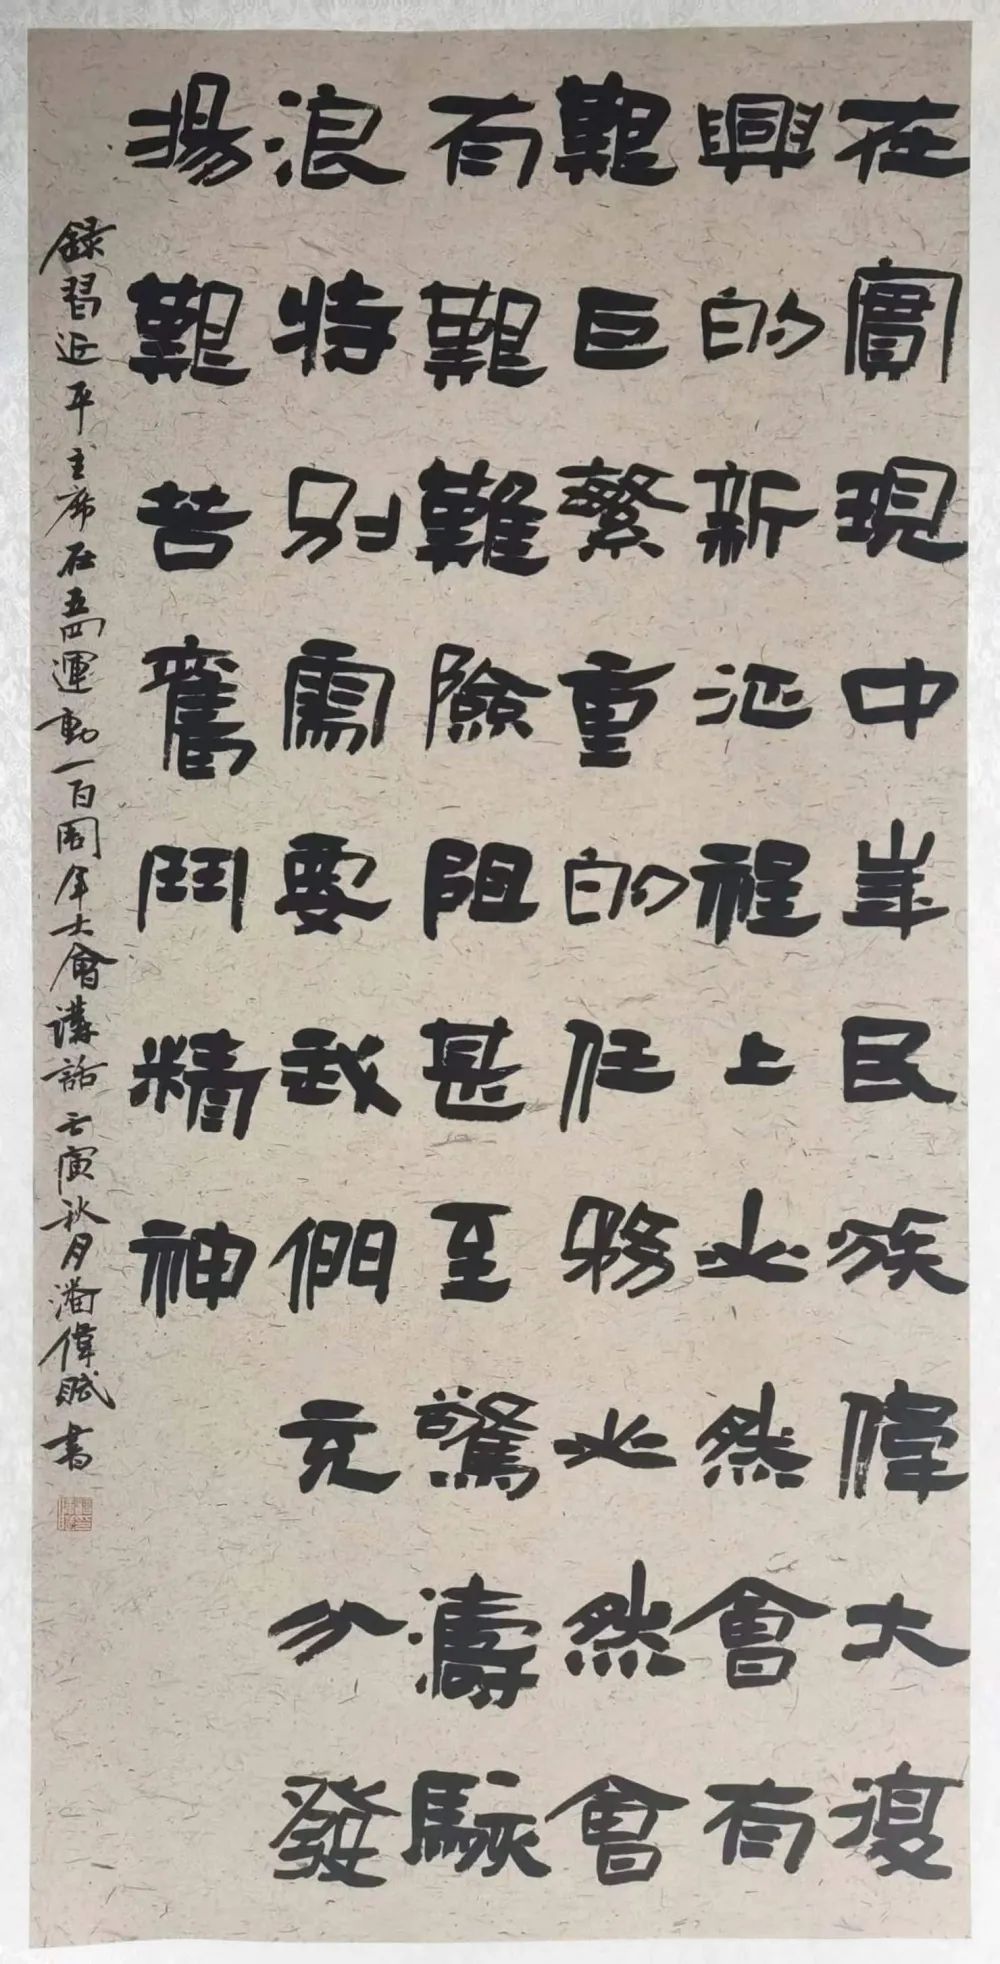 在實現中華民族偉大復
興的新征程上必然會有
艱巨繁重的任務必然會
有艱難險阻甚至驚濤駭
浪特別需要我們充分發
揚艱苦奮鬥精神
錄習近平主席在五四運動一百周年大會講話壬寅秋月潘偉賦書